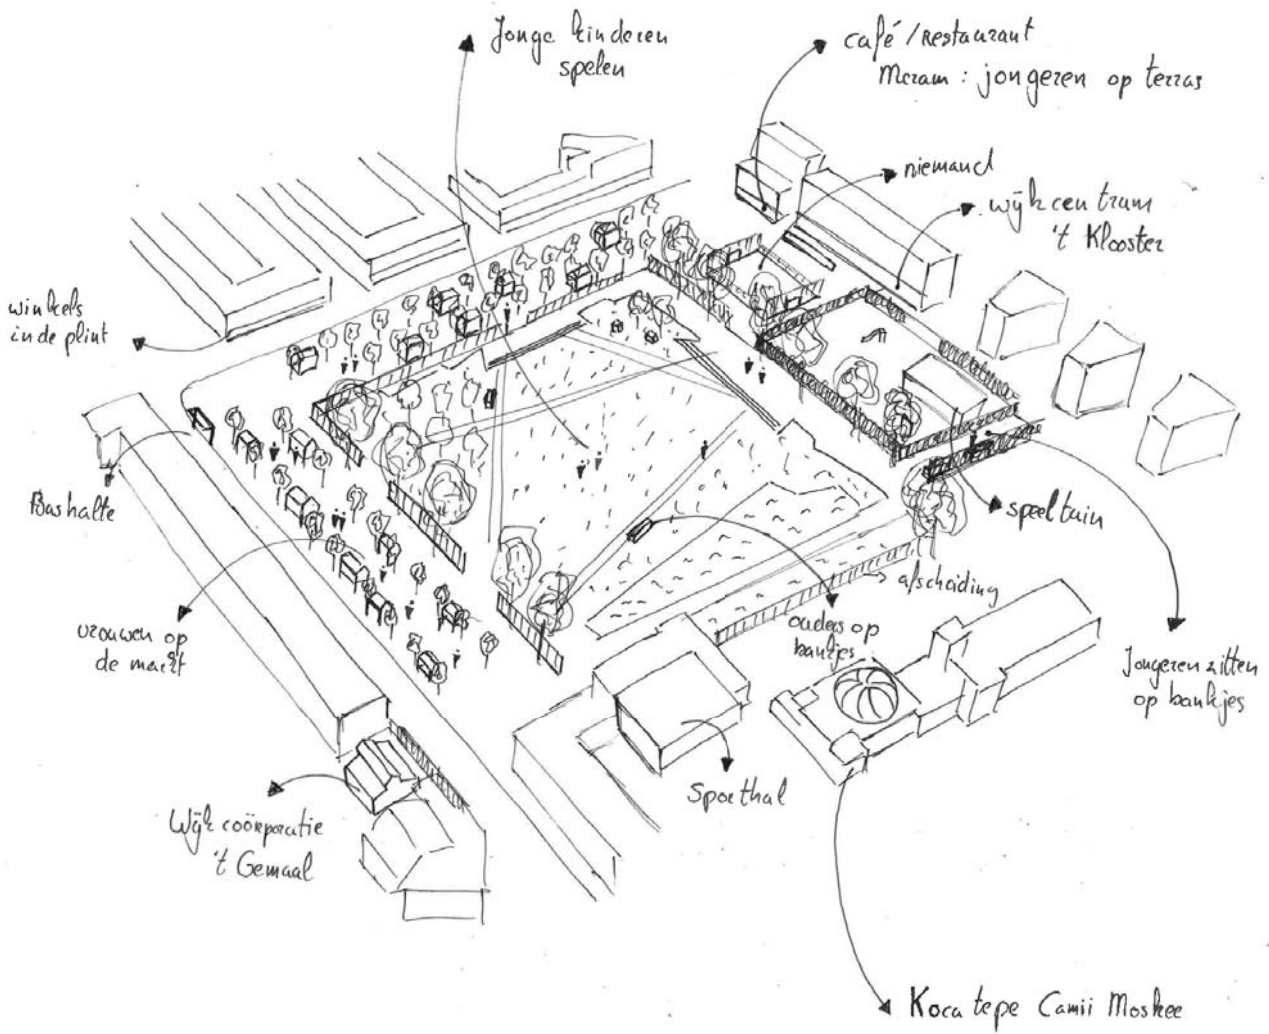 Jonge kinderen
spelen
café / restaurant
Meram : jongeren op terras
niemand
wijkcentrum
't Klooster
winkels
in de plint
Bushalte
speeltuin
afscheiding
vrouwen op
de markt
ouders op
bankjes
Jongeren zitten
op bankjes
Sporthal
Wijkcoöperatie
't Gemaal
Kocatepe Camii Moskee